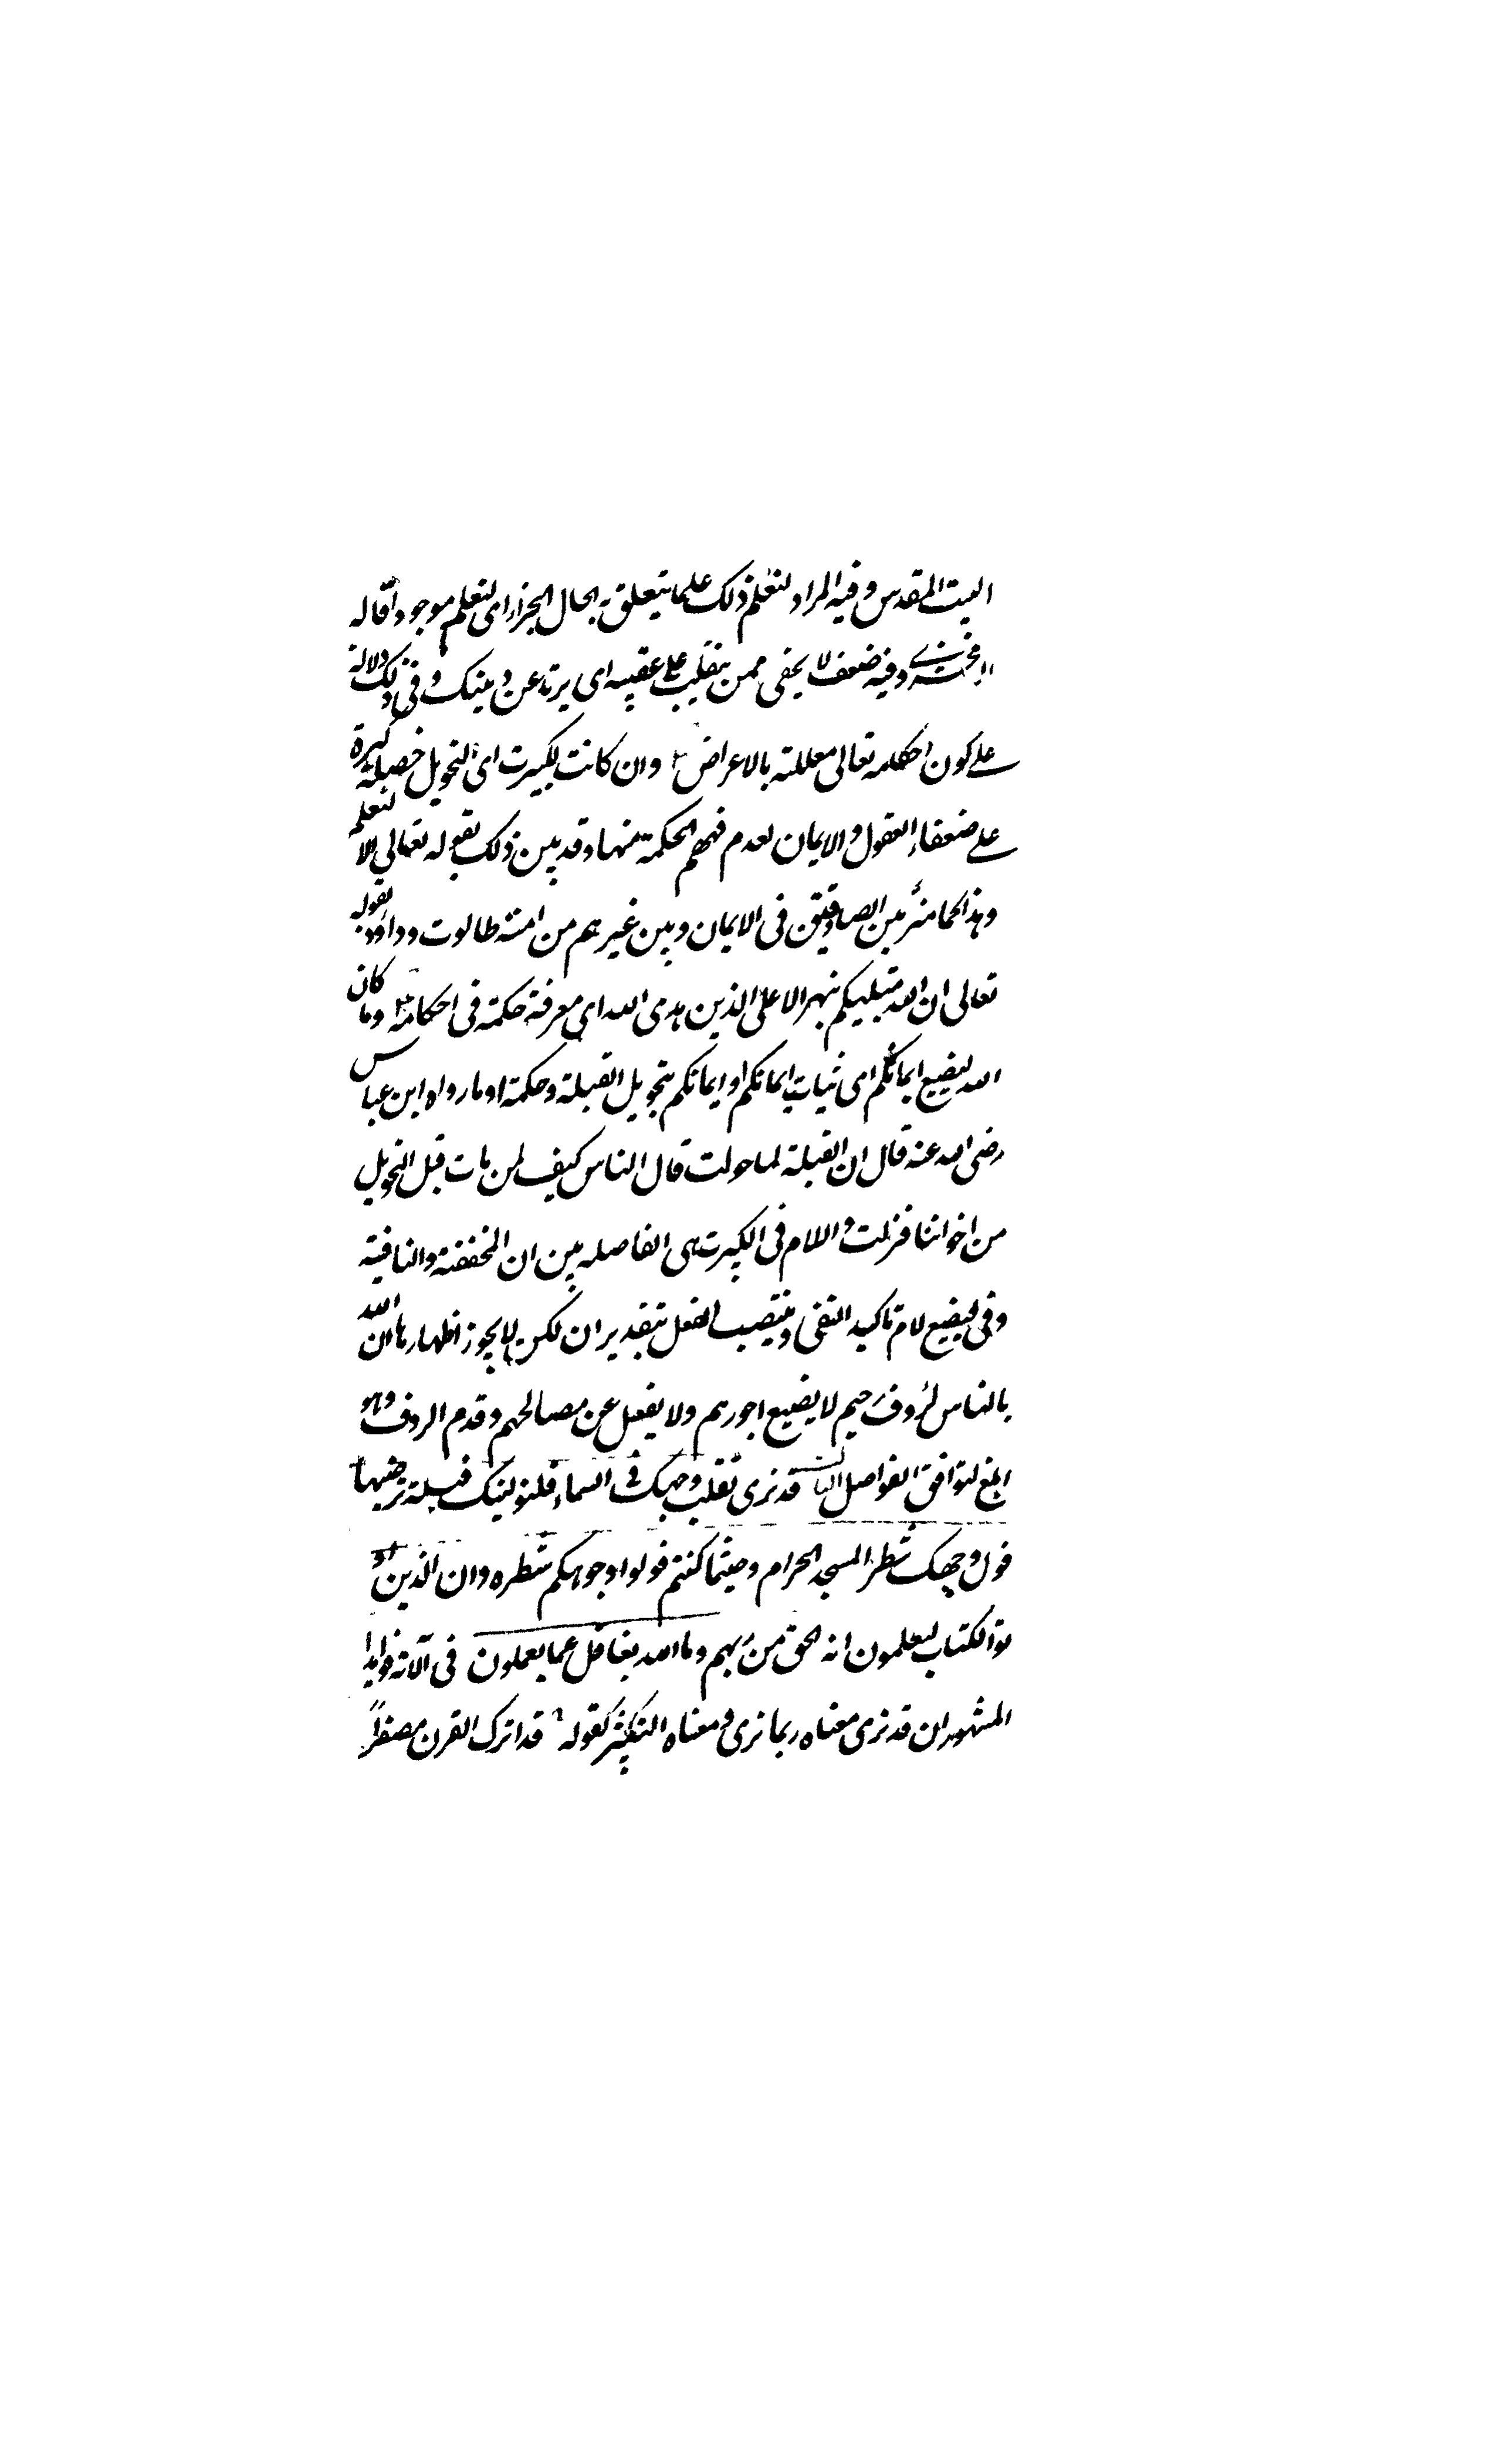 البيت المقدس وفيه المراد لنعلم ذلك علما يتعلق به الحال الجزاء اى لنعلم موجودا قاله
الزمخشرى وفيه ضعف لا يخفى ممن ينقلب على عقبيه اى يرتد عن دينك وفى ذلك دلالة
على كون احكامه تعالى معللة بالاعراض وان كانت لكبيرت اى التحويل خصيلة كبيرة
على ضعفاء العقول والايمان لعدم فهمهم الحكمة منها وقد بين ذلك بقوله تعالى الا لنعلم
وهذا كما ميز بين الصادقين فى الايمان وبين غيرهم من امته طالوت وداود بقوله
تعالى ان الله مبتليكم بنهر الا على الذين هدى الله اى معرفة حكمة فى احكامه وما كان
الله ليضيع ايمانكم اى ثبات ايمانكم او ايمانكم بتحويل القبلة وحكمة او ما رواه ابن عباس
رضى الله عنه قال ان القبلة لما حولت قال الناس كيف لمن مات قبل التحويل
من اخواننا فنزلت واللام فى الكبيرت هى الفاصله بين ان المخففة والنافية
وفى ليضيع لام تاكيد النفى وينتصب الفعل بتقدير ان لكن لا يجوز اظهارها ان الله
بالناس لرؤف رحيم لا يضيع اجورهم ولا يغفل عن مصالحهم وقدم الروف وهو
ابلغ لتوافق الفواصل قد نرى تقلب وجهك فى السماء فلنولينك قبلة ترضيها
فول وجهك شطر المسجد الحرام وحيثما كنتم فولوا وجوهكم شطره وان الذين او
توا الكتاب ليعلمون انه الحق من ربهم وما الله بغافل عما يعملون فى الآية فوايد ا
المشهور ان قد نرى معناه ربما نرى ومعناه التكثير كقوله قد اترك القرن مصفرا